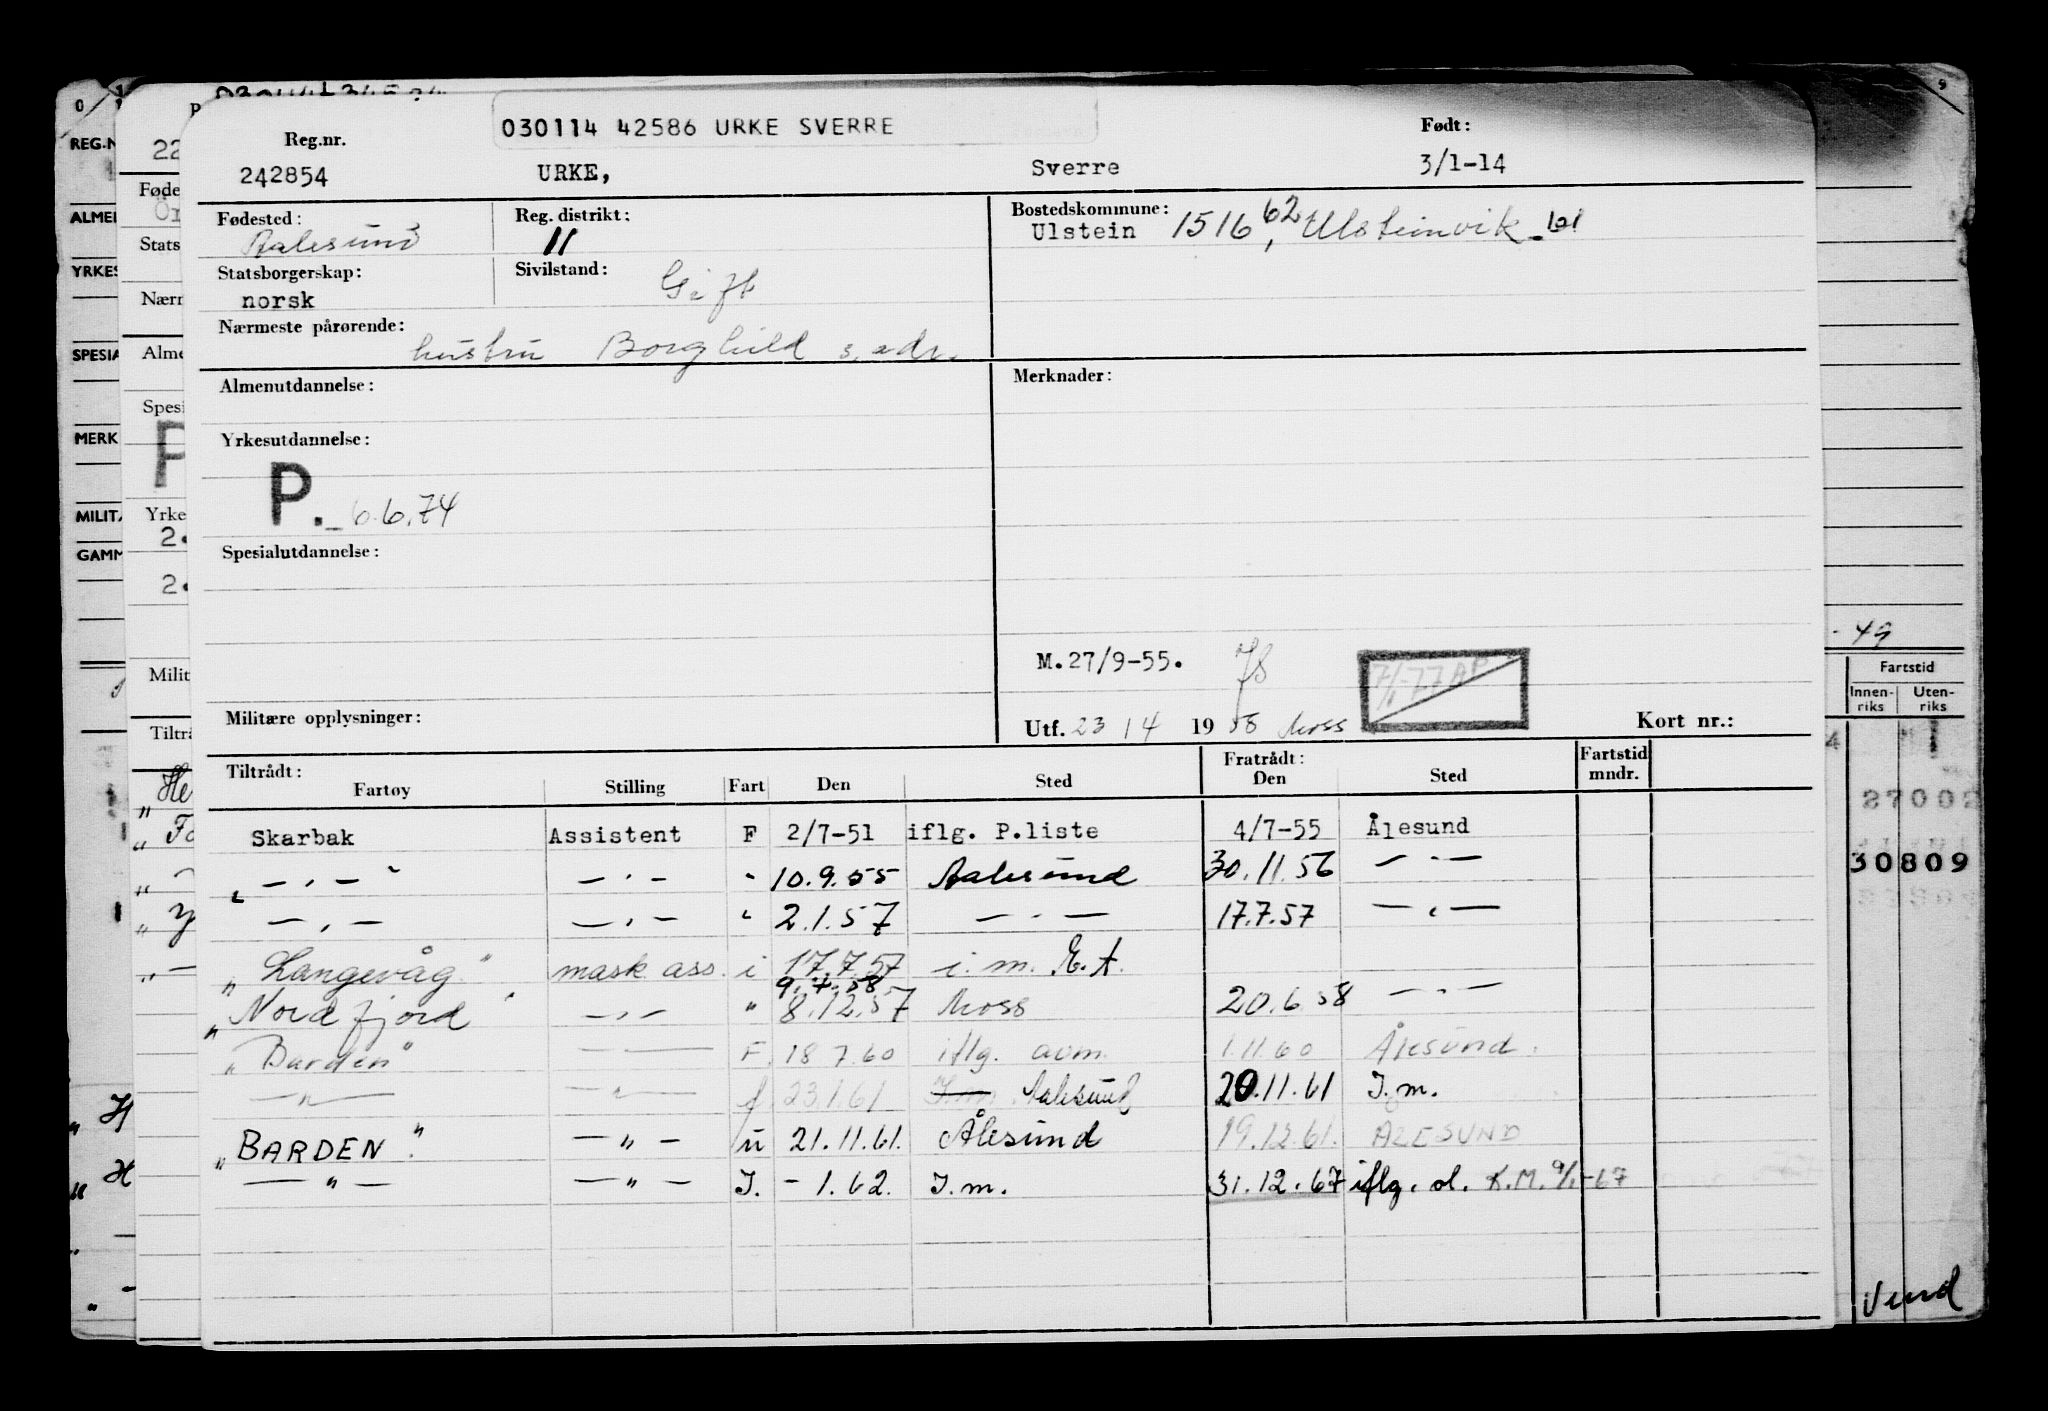 030114 42586 URKE SVERRE
Reg.nr. Født:
242854 URKE, Sverre 3/1-14
Fødested: Reg. distrikt: Bostedskommune:
Aalesund 11 Ulstein 1516 62, Ulsteinvik
Statsborgerskap: Sivilstand:
norsk Gift
Nærmeste pårørende:
hustru Borghild s. adr.
Almenutdannelse: Merknader:
Yrkesutdannelse:
P. 6.6.74
Spesialutdannelse:
M.27/9-55.
Militære opplysninger: Utf. 23/4 1958 Moss Kort nr.:
Tiltrådt: Fratrådt: Fartstid
Fartøy Stilling Fart Den Sted Den Sted mndr.
Skarbak Assistent F 2/7-51 iflg. P.liste 4/7-55 Ålesund
„ — . — " — . — " 10.9.55 Aalesund 30.11.56 — . —
— . — — . — " 2.1.57 — . — 17.7.57 — . —
„Langevåg" mask ass. i 17.7.57 i. m. E.A.
9.7.58
„Nordfjord" — . — " 8.12.57 Moss 20.6.58 — . —
„Barden" — F. 18 7.60 iflg. avm. 1.11.60 Ålesund.
— " — — " — f. 23.1.61 I.m. Aalesund 20.11.61 I.m.
„BARDEN". — " — u 21.11.61. Ålesund 19.12.61. ÅLESUND
— " — — " — I. - 1.62. I.m. 31.12.67 iflg. ol. K.M. 9/1-67
REG.N
ALMEN
YRKES
SPESIA
MERK
MILITÆ
GAMM
22
Føde
Stats
Nærm
Alme
Spesi
P
Yrke
2.
2.
Milit
Tiltrå
- 49
Fartstid
Innen- Uten-
riks riks
27002
30809
Vend